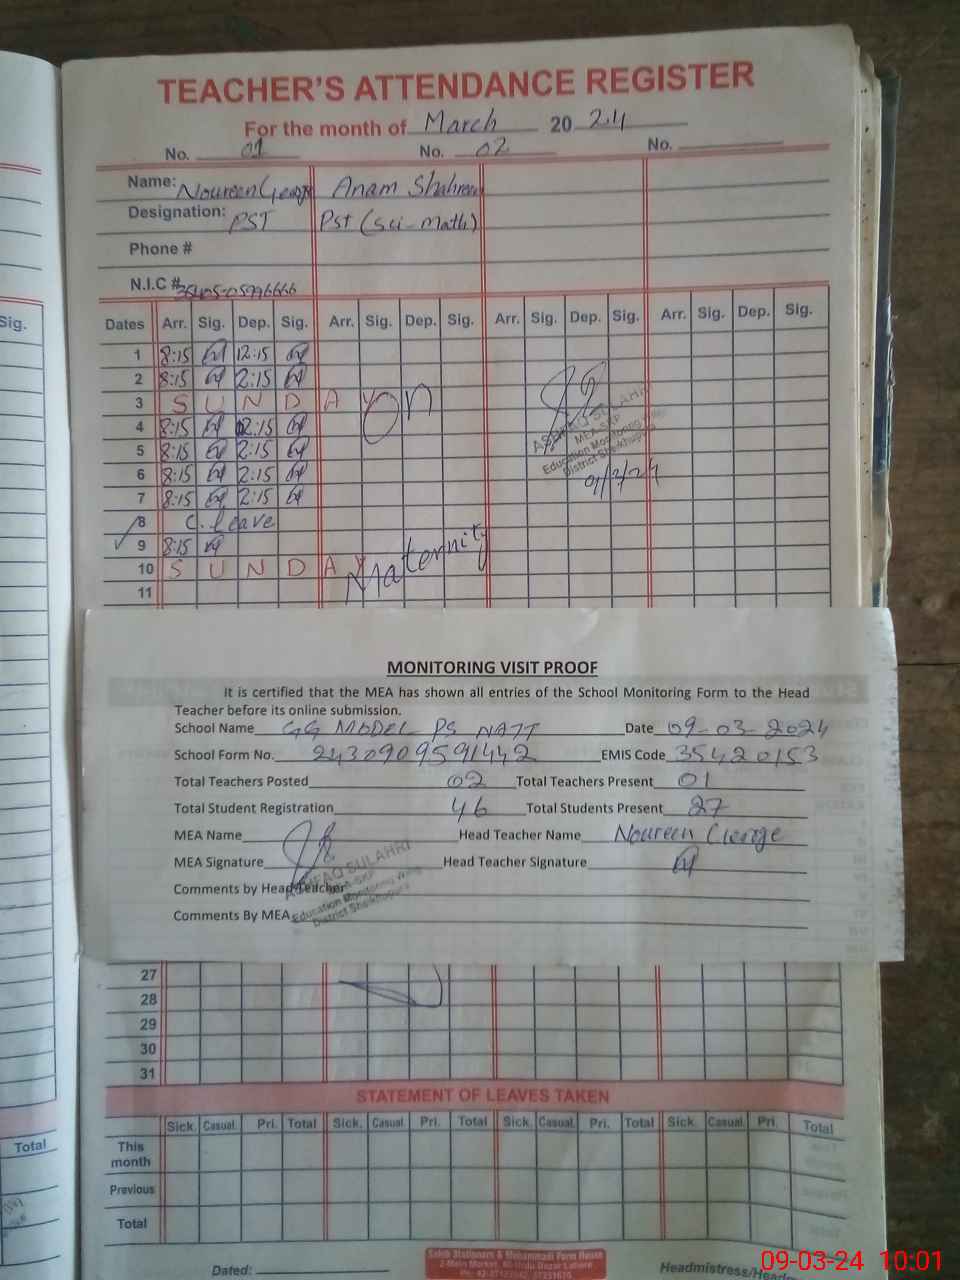 TEACHER'S ATTENDANCE REGISTER
For the month of March 20 24
No. 01 No. 02 No.
Name: Noureen George Anam Shahreen
Designation: PST Pst (Sci-Math)
Phone #
N.I.C #
Sig. Dates Arr. Sig. Dep. Sig. Arr. Sig. Dep. Sig. Arr. Sig. Dep. Sig. Arr. Sig. Dep. Sig.
1 8:15 12:15
2 8:15 2:15
3 S U N D A Y On
4 8:15 2:15
5 8:15 2:15
6 8:15 2:15
7 8:15 2:15
8 C. leave
9 8:15
10 S U N D A Y Maternity
11
ASHFAQ SULAHRI
MEA-SKP
Education Monitoring Wing
District Sheikhupura
9/3/24
MONITORING VISIT PROOF
It is certified that the MEA has shown all entries of the School Monitoring Form to the Head
Teacher before its online submission.
School Name GG MODEL PS NATT Date 09-03-2024
School Form No. 2430909591442 EMIS Code 35420153
Total Teachers Posted 02 Total Teachers Present 01
Total Student Registration 46 Total Students Present 27
MEA Name Head Teacher Name Noureen George
MEA Signature Head Teacher Signature
Comments by Head Teacher
Comments By MEA
ASHFAQ SULAHRI
MEA-SKP
Education Monitoring Wing
District Sheikhupura
27
28
29
30
31
STATEMENT OF LEAVES TAKEN
Sick. Casual. Pri. Total Sick. Casual. Pri. Total Sick. Casual. Pri. Total Sick. Casual. Pri. Total
Total This month
Previous
Total
Dated: Headmistress/Head
09-03-24 10:01